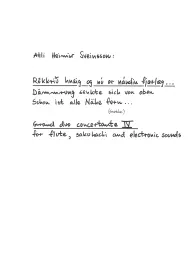 Atli Heimir Sveinsson:
Rökkrið hnig og nú er nándin fjarlæg...
Dämmrung senkte sich von oben
Schon ist alle Nähe fern...
(Goethe)
Grand duo concertante IV
for flute, sakuhachi and electronic sounds